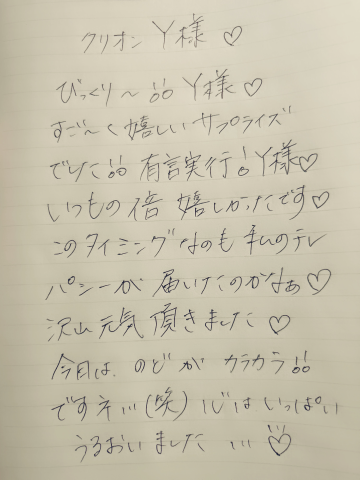 クリオン Y様♡
びっくり〜!! Y様♡
すご〜く嬉しいサプライズ
でした!! 有言実行!Y様♡
いつもの倍 嬉しかったです♡
このタイミングなのも 私のテレ
パシーが 届いたのかなぁ♡
沢山 元気 頂きました♡
今日は、のどが カラカラ!!
ですネ…(笑) 心はいっぱい
うるおいました …♡